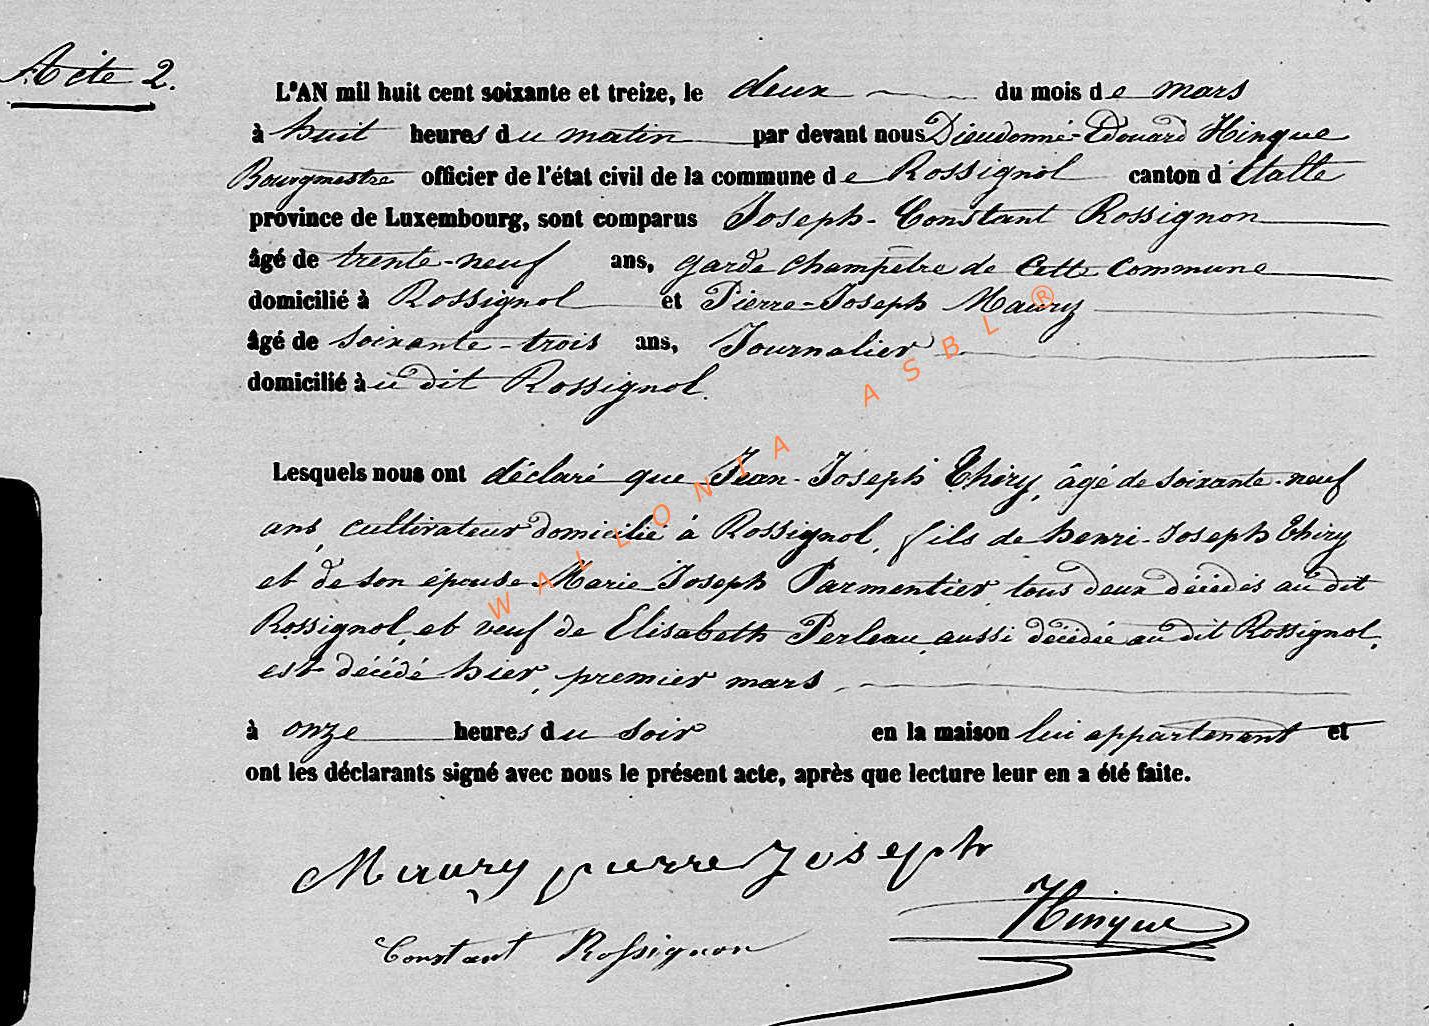 Acte 2.
L'AN mil huit cent soixante et treize, le deux du mois de mars
à huit heures du matin par devant nous Dieudonné-Edouard Hinque
Bourgmestre officier de l'état civil de la commune de Rossignol canton d'Etalle
province de Luxembourg, sont comparus Joseph-Constant Rossignon
âgé de trente-neuf ans, garde champêtre de cette commune
domicilié à Rossignol et Pierre-Joseph Maury
âgé de soixante-trois ans, Journalier
domicilié àu dit Rossignol.
Lesquels nous ont déclaré que Jean-Joseph Thiry, âgé de soixante-neuf
ans, cultivateur domicilié à Rossignol, fils de henri-Joseph Thiry
et de son épouse Marie Joseph Parmentier, tous deux décédés au dit
Rossignol, et veuf de Elisabeth Perleau, aussi décédée au dit Rossignol,
est décédé hier, premier mars
à onze heures du soir en la maison lui appartenant et
ont les déclarants signé avec nous le présent acte, après que lecture leur en a été faite.
Maury pierre Joseph
Hinque
Constant Rossignon
WALLONIA ASBL ®